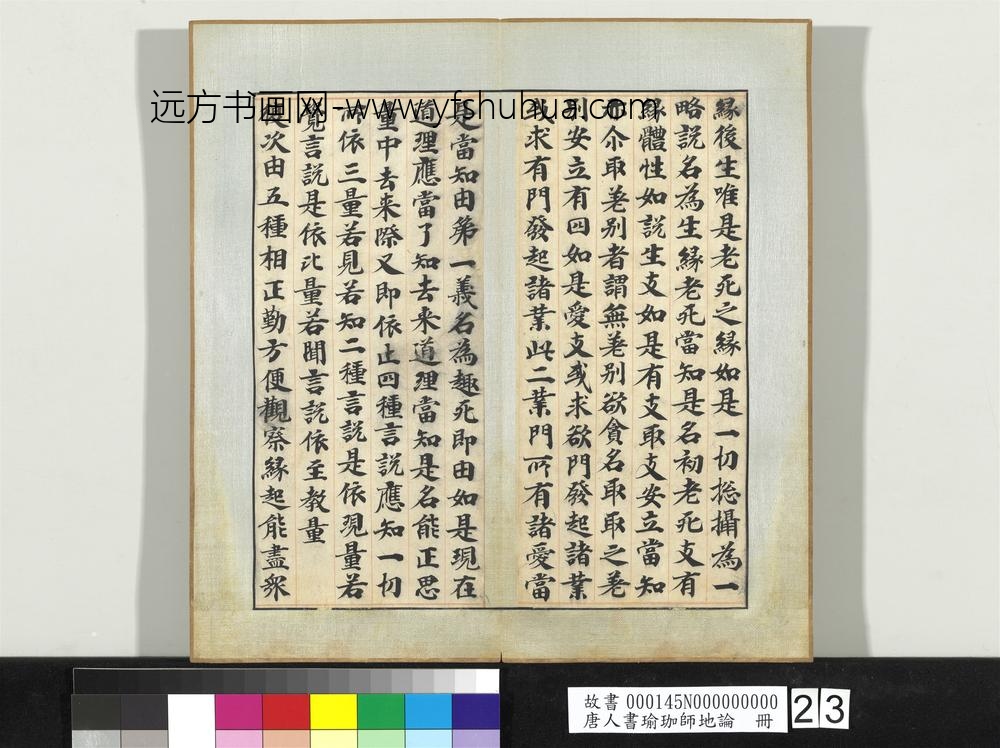 远方书画网-www.yfshuhua.com
緣後生唯是老死之緣如是一切揔攝為一
略說名為生緣老死當知是名初老死支有
緣體性如說生支如是有支取支安立當知
亦尒取差別者謂無差別欲貪名取取之差
別安立有四如是愛支或求欲門發起諸業
或求有門發起諸業此二業門所有諸愛當
是當知由第一義名為趣死即由如是現在
道理應當了知去来道理當知是名能正思
量中去来際又即依止四種言說應知一切
所依三量若見若知二種言說是依現量若
覺言說是依比量若聞言說依至教量
復次由五種相正勤方便觀察緣起能盡眾
故書 000145N000000000
唐人書瑜珈師地論 冊
23